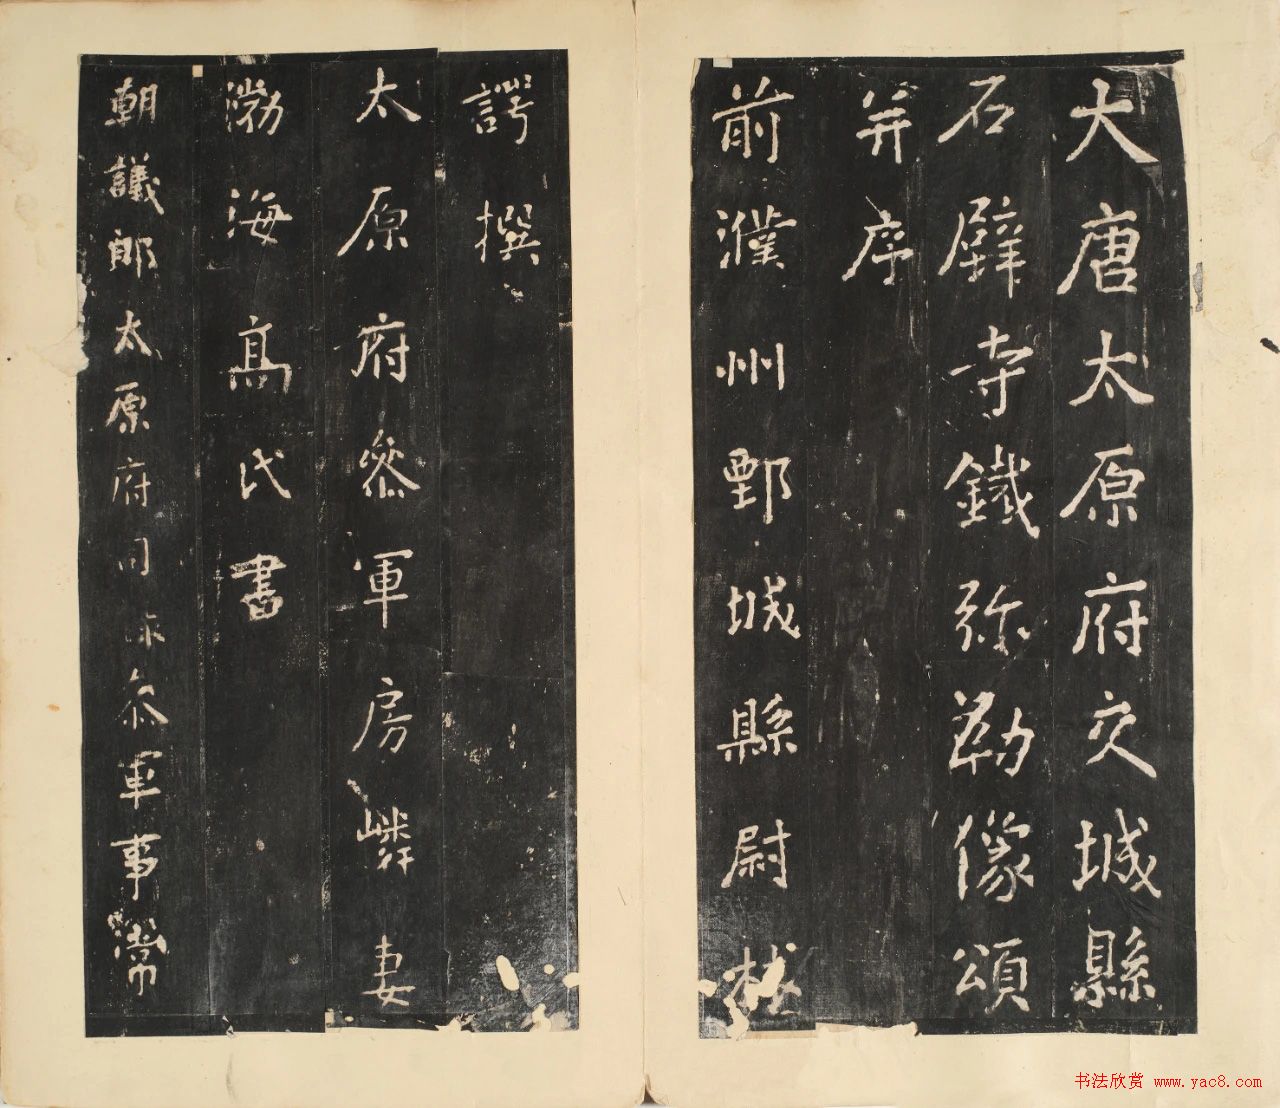 大唐太原府交城縣
石壁寺鐵弥勒像頌
并序
前濮州鄄城縣尉林
諤撰
太原府叅軍房嶙妻
渤海高氏書
朝議郎太原府司錄叅軍事常
书法欣赏 www.yac8.com